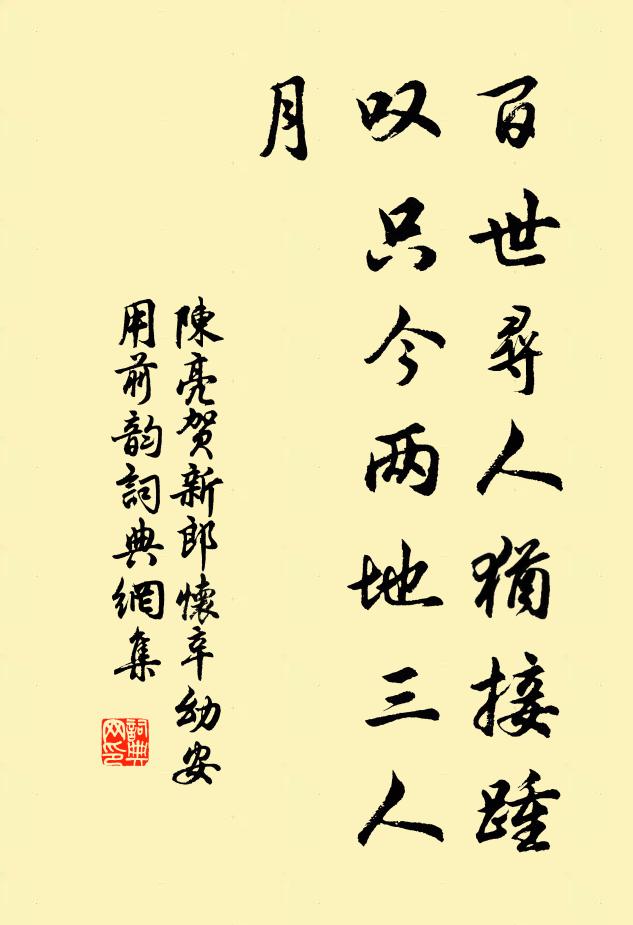 百世尋人猶接踵
叹只今两地三人
月
陳亮賀新郎懷辛幼安
用前韵詞典網集
詞典网印